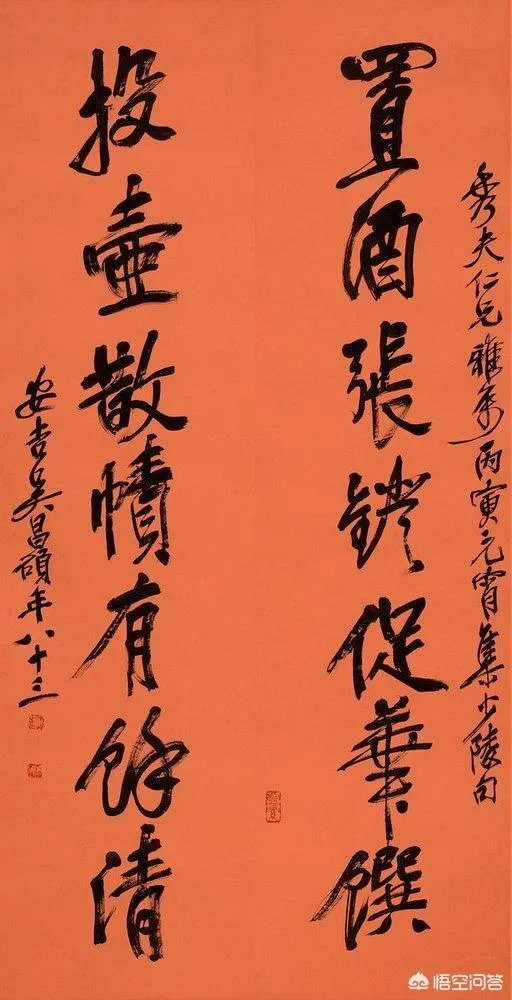 秀夫仁兄雅屬丙寅元宵集少陵句
置酒張鐙促華饌
投壺散幘有餘清
安吉吳昌碩年八十三
悟空问答